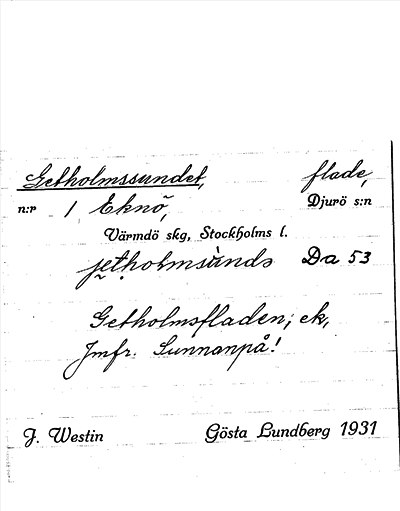 Getholmssundet, flade,
n:r 1 Eknö, Djurö s:n
Värmdö skg, Stockholms l.
Da 53
Getholmsfladen; ek,
Jmfr. Sunnanpå!
J. Westin Gösta Lundberg 1931